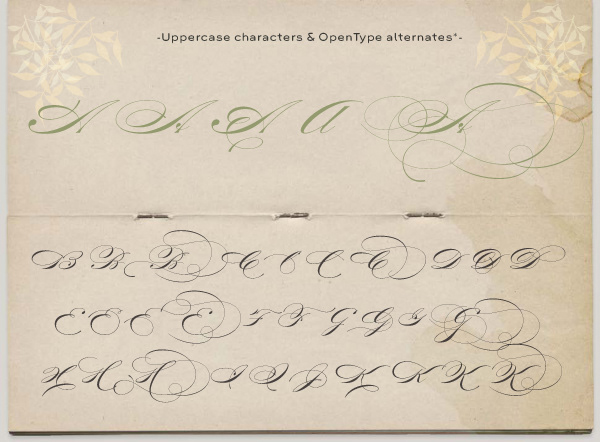 -Uppercase characters & OpenType alternates*-
A A A A A
B B B C C C C D D D
E E E E F F G G G G
H H H I I J K K K K